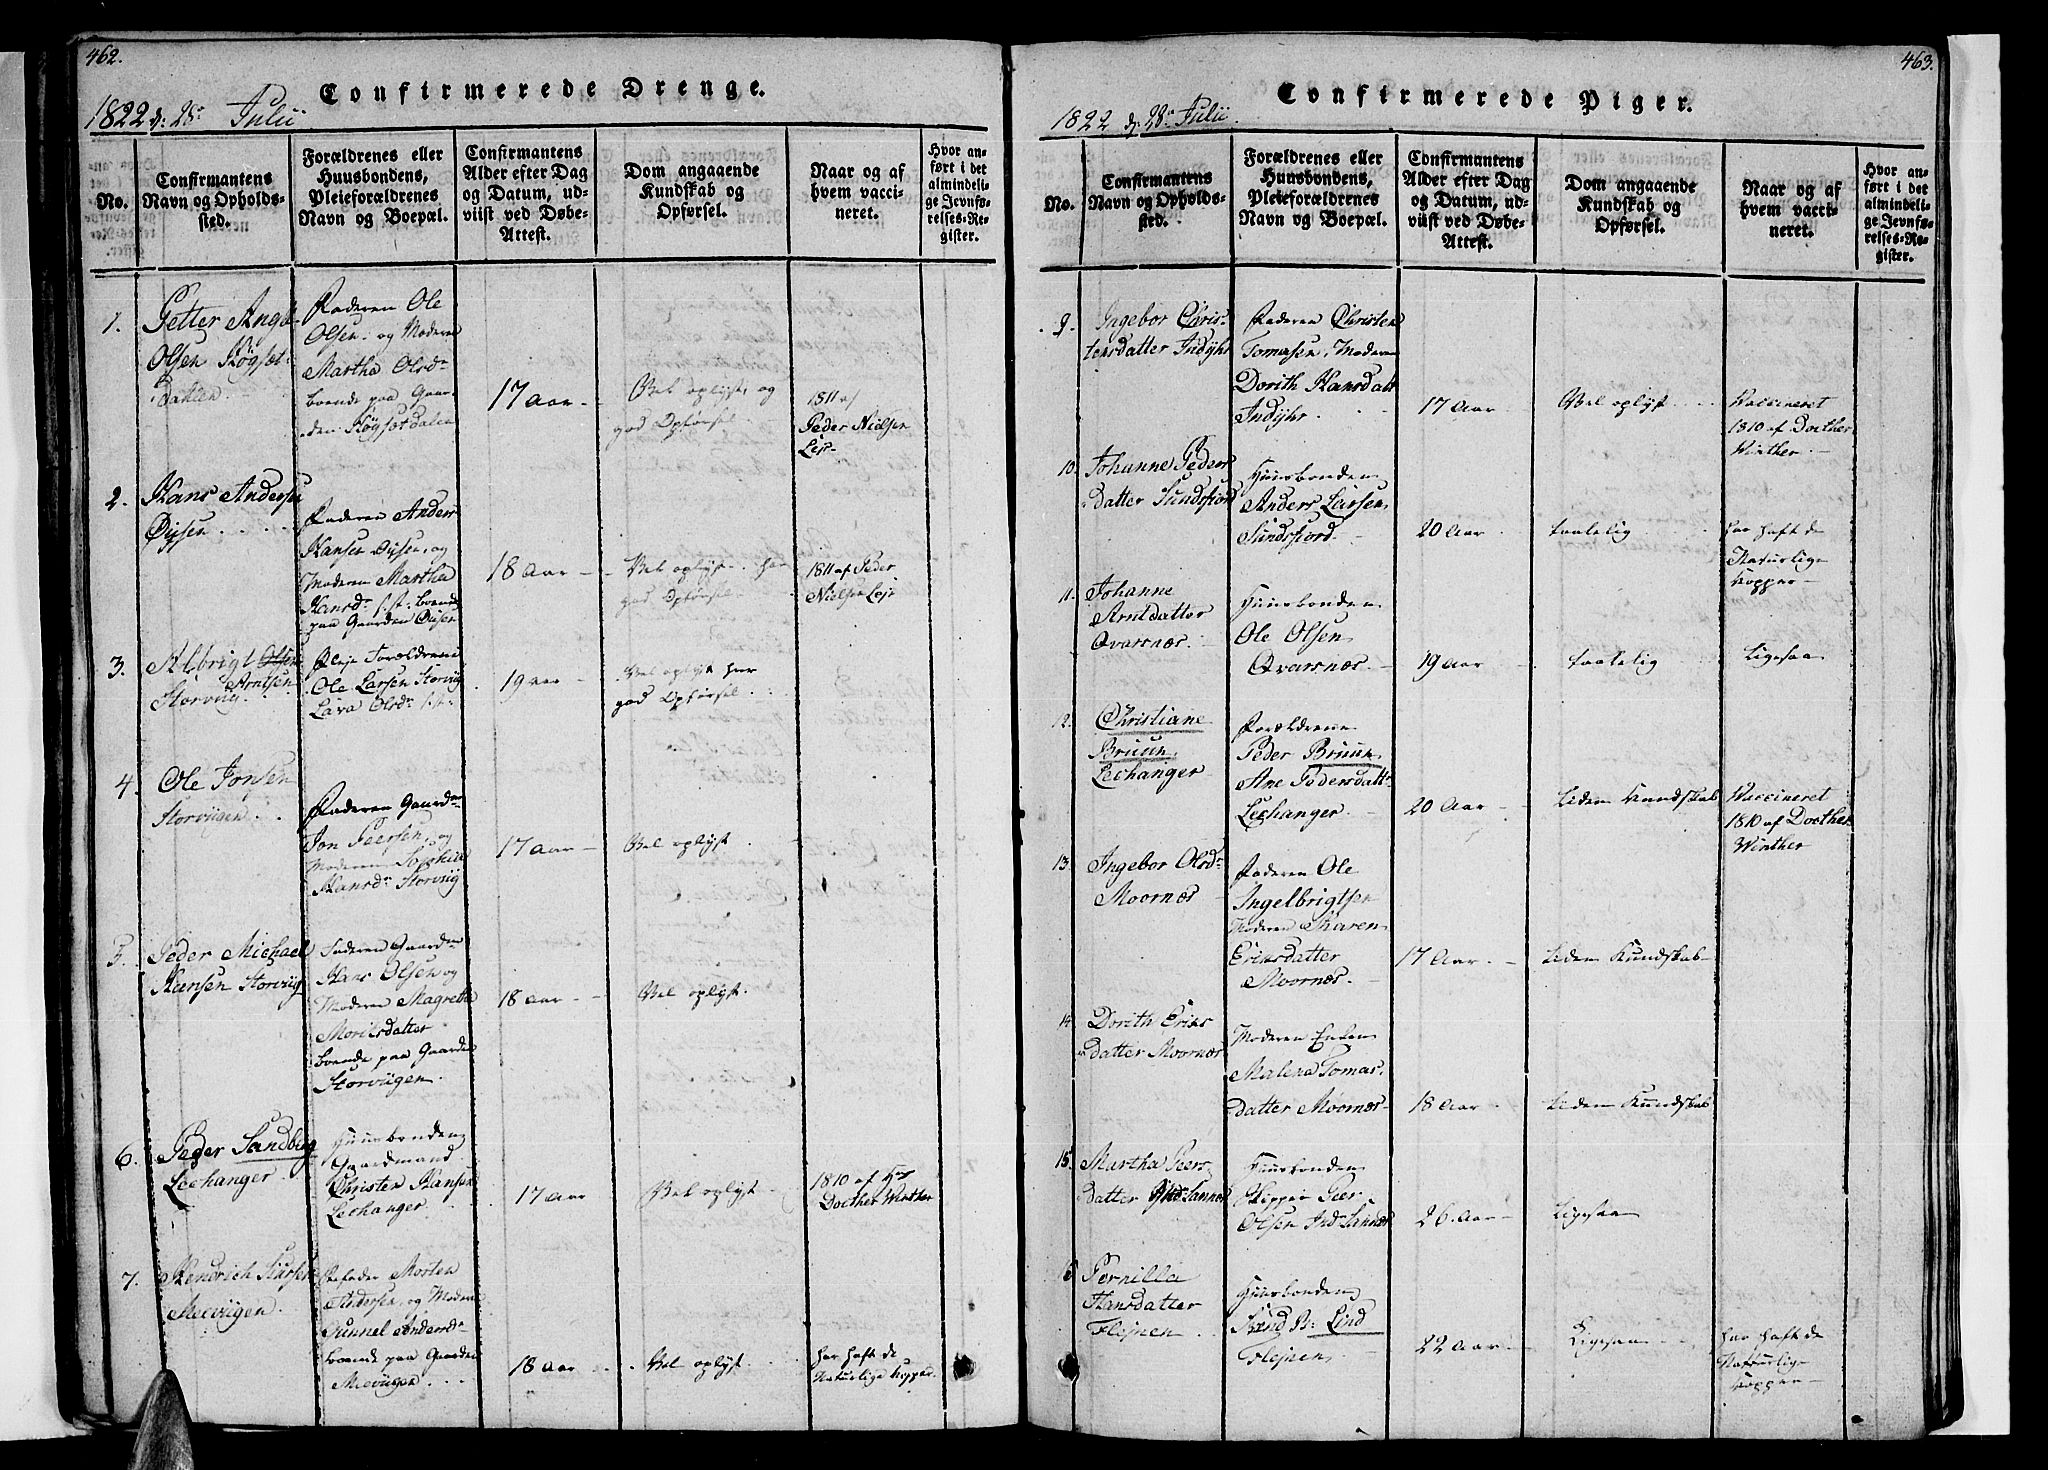 462.
Confirmerede Drenge.
1822 d: 28de Julii
No.
Confirmantens
Navn og Opholds-
sted.
Forældrenes eller
Huusbondens,
Pleieforældrenes
Navn og Boepæl.
Confirmantens
Alder efter Dag
og Datum, ud-
viist ved Døbe-
Attest.
Dom angaaende
Kundskab og
Opførsel.
Naar og af
hvem vacci-
neret.
Hvor an-
ført i det
almindeli-
ge Jevnfø-
relses-Re-
gister.
1.
Petter
Olsen Høgset-
dahlen
Faderen Ole
Olsen og Moderen
Martha Olsd.
boende paa Gaar-
den Høgsetdalen
17 Aar
Vel oplyst, og
god Opførsel
1811 af
Peder Nielsen
Leje
2.
Hans Andersen
Øysen
Faderen Anders
Hansen Øysen, og
Moderen Martha
Hansdr. s. st. boende
paa Gaarden Øysen
18 Aar
Vel oplyst. har
god Opførsel
1811 af Peder
Nielsen Leje
3.
Albrigt Olsen
Arntsen
Storviig
Pleje Forældrene
Ole Larsen Storvig
Lava Olsdr. s. st.
19 aar
Vel oplyst har
god Opførsel
4.
Ole Jonsen
Storviigen
Faderen Gaardm.
Jon Peersen, og
Moderen Sophia
Hansdr. Storviig
17 Aar
Vel oplyst
5.
Peder Michael
Hansen Storviig
Faderen Gaardm.
Hans Olsen og
Moderen Magrethe
Moritsdatter
boende paa Gaarden
Storviigen
18 Aar
Vel oplyst.
6.
Peder Sandberg
Leehanger
Huusbonden
Gaardmand
Christen Hansen
Leehanger
17 Aar
Vel oplyst
1810 af Hr
Docther Winther
7.
Hendrich Siursen
Meeviigen
Stefader Morten
Andersen, og Moder
Gunnel Andersdr
boende paa Gaarden
Meviigen
18 Aar
Vel oplyst
har haft de
Naturlige Kopper.
463.
Confirmerede Piger.
1822 d. 28de Julii.
No.
Confirmantens
Navn og Opholds-
sted.
Forældrenes eller
Huusbondens,
Pleieforældrenes
Navn og Boepæl.
Confirmantens
Alder efter Dag
og Datum, ud-
viist ved Døbe-
Attest.
Dom angaaende
Kundskab og
Opførsel.
Naar og af
hvem vacci-
neret.
Hvor an-
ført i det
almindeli-
ge Jevnfø-
relses-Re-
gister.
9.
Ingebor Chris-
tensdatter Indyhr
Faderen Christen
Tomæsen, Moderen
Dorith Hansdatr
Indyhr
17 Aar
Vel oplyst
Vaccineret
1810 af Docther
Winther.
10.
Johanne Peders
datter Sundsfiord
Huusbonden
Anders Larsen
Sundsfiord
20 Aar
taalelig
har haft de
Naturlige
Kopper
11.
Johanne
Arntdatter
Qvarsnæs
Huusbonden
Ole Olsen
Qvarsnæs
19 Aar
taalelig
Ligesaa
12.
Christiane
Bruun
Leehanger
Forældrene
Peder Bruun
Ane Pedersdattr
Leehanger
20 Aar
Liden Kundskab
Vaccineret
1810 af Docther
Winther
13.
Ingebor Olsdr
Moornæs
Faderen Ole
Ingelbrigtsen
Moderen Karen
Ericsdatter
Moornæs
17 Aar
Liden Kundskab
14.
Dorith Erics
datter Moornæs
Moderen Enken
Malena Tomas.
datter Moornæs
18 Aar
Liden Kundskab
15.
Martha Peers
datter
Huusbonden
Skipper Peer
Olsen
26. Aar
Ligesaa
Pernilla
Hansdatter
Flejnen
Huusbonden
Lind
Flejnen
22 Aar
Ligesaa
har haft de
Naturlige
Kopper